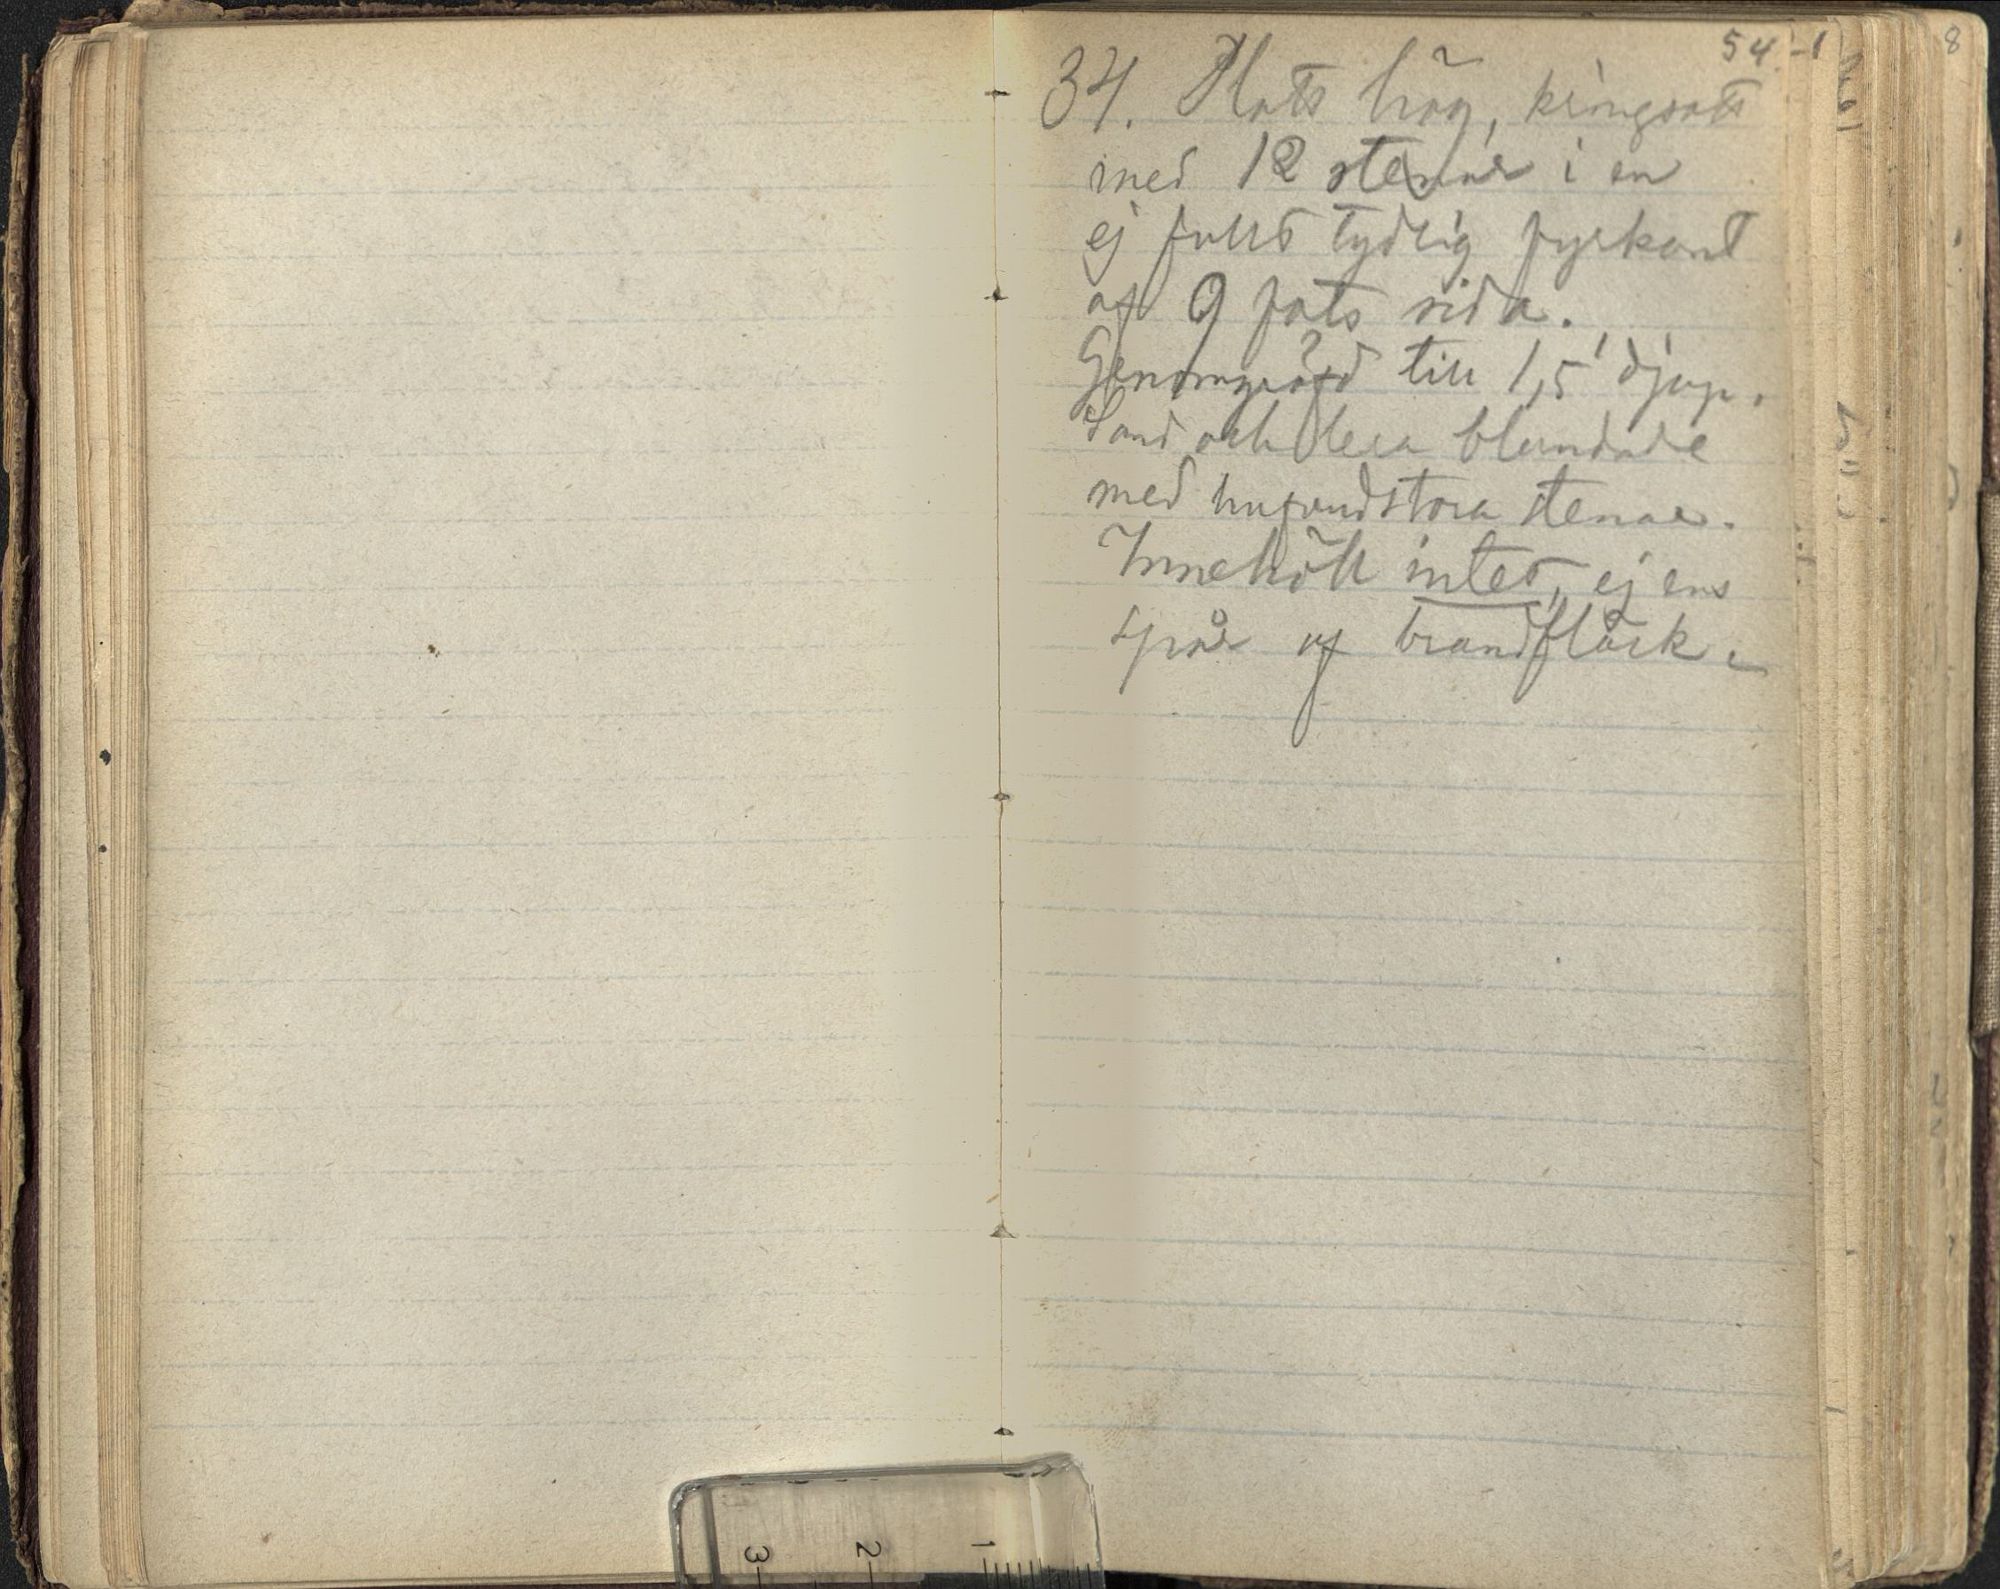 54.
34. Flat hög, kringsatt
med 12 stenar i en
ej fullt tydlig fyrkant
af 9 fots sida.
Genomgräfd till 1,5' djup.
Sand och lera blandade
med hufvudstora stenar.
Innehöll intet, ej ens
spår af brandfläck.
8
3 2 1